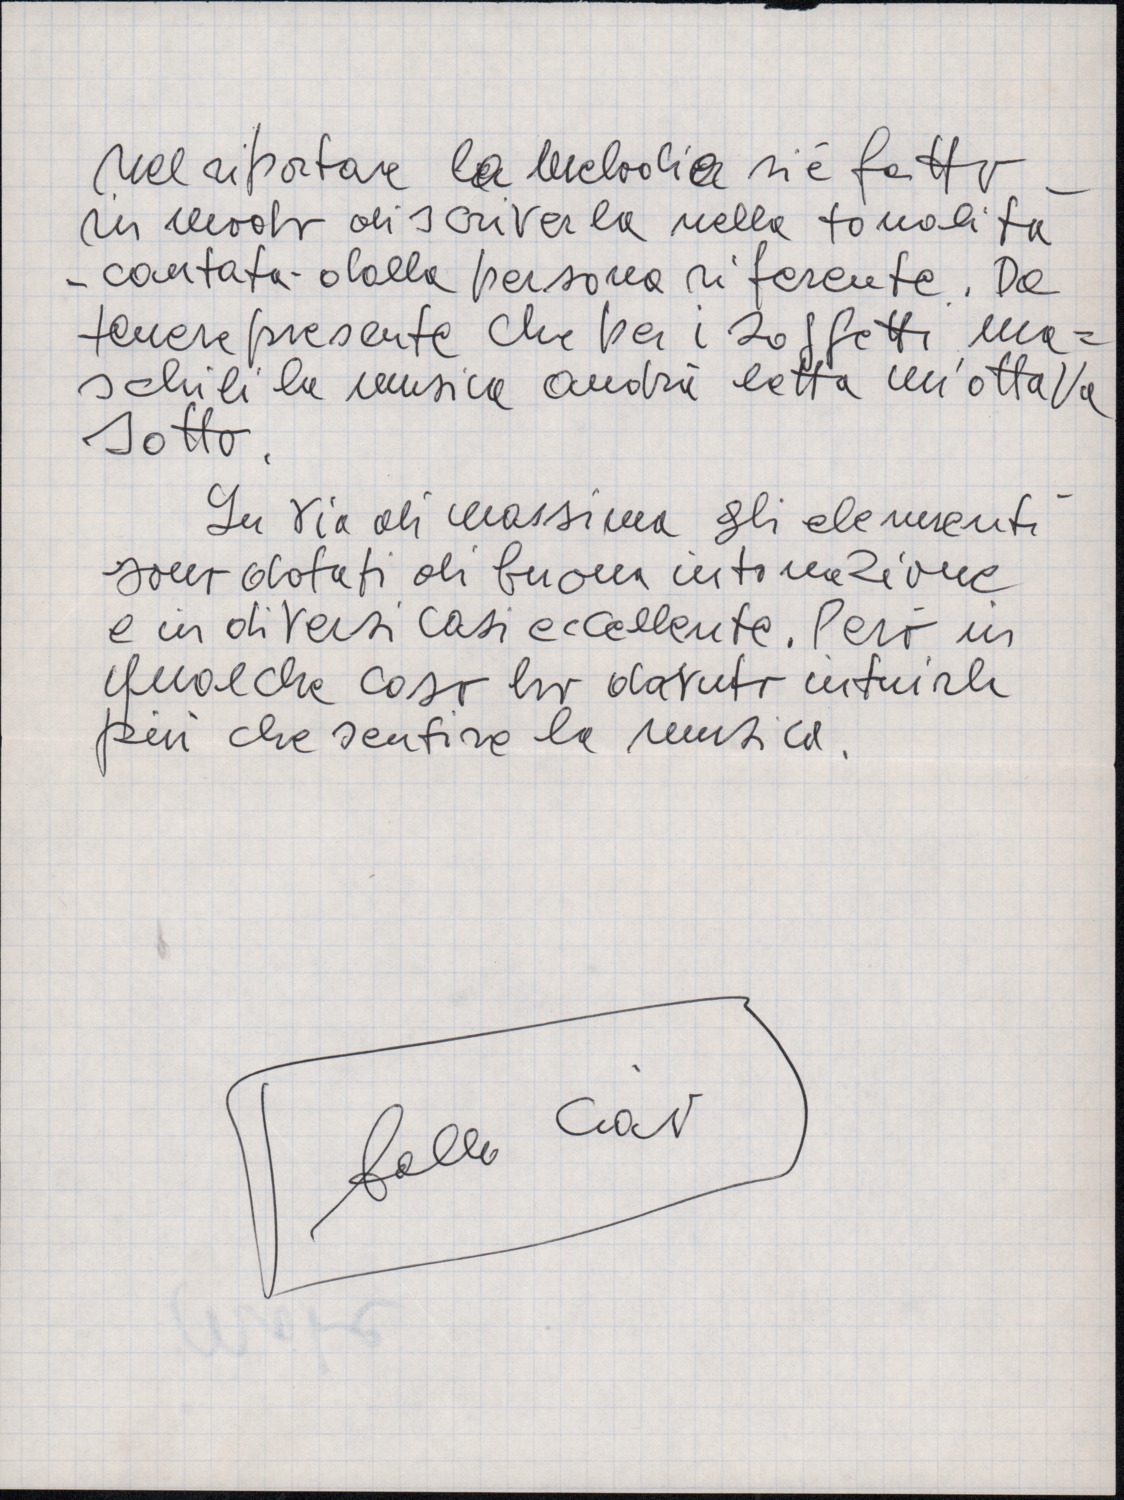 Nel riportare la melodia si è fatto
in modo di scriverla nella tonalità
- cantata - dalla persona riferente. Da
tenere presente che per i soggetti ma=
schili la musica andrà letta un'ottava
sotto.
In via di massima gli elementi
sono dotati di buona intonazione
e in diversi casi eccellente. Però in
qualche caso ho dovuto intuirla
più che sentire la musica.
ciao